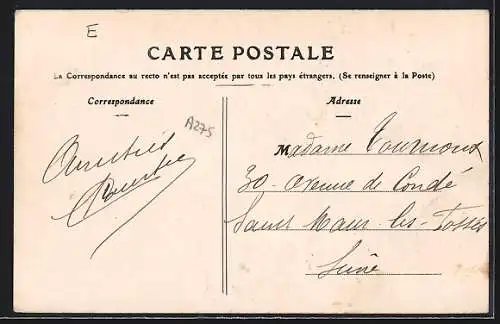 E
CARTE POSTALE
La Correspondance au recto n'est pas acceptée par tous les pays étrangers. (Se renseigner à la Poste)
Correspondance
Adresse
A275
Amitiés
Madame Tournoux
30 - avenue de Condé
Saint Maur les-Fossés
Seine